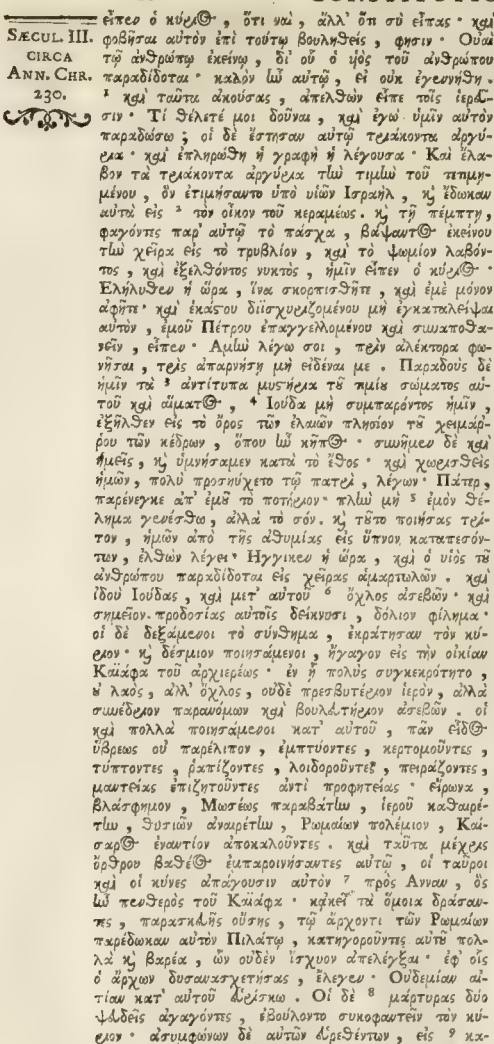 SÆCUL. III.
CIRCA
ANN. CHR.
230.
εἶπεν ὁ κύριος , ὅτι ναὶ , ἀλλ' ὅτι σὺ εἶπας · καὶ
φοβῆσαι αὐτὸν ἐπὶ τούτῳ βουληθεὶς , φησιν · Οὐαὶ
τῷ ἀνθρώπῳ ἐκείνῳ , δι' οὗ ὁ υἱὸς τοῦ ἀνθρώπου
παραδίδοται · καλὸν ἦν αὐτῷ , εἰ οὐκ ἐγεννήθη .
¹ καὶ ταῦτα ἀκούσας , ἀπελθὼν εἶπε τοῖς ἱερεῦ-
σιν · Τί θέλετέ μοι δοῦναι , καὶ ἐγὼ ὑμῖν αὐτὸν
παραδώσω ; οἱ δὲ ἔστησαν αὐτῷ τριάκοντα ἀργύ-
ρια · καὶ ἐπληρώθη ἡ γραφὴ ἡ λέγουσα · Καὶ ἔλα-
βον τὰ τριάκοντα ἀργύρια τὴν τιμὴν τοῦ τετιμη-
μένου , ὃν ἐτιμήσαντο ὑπὸ υἱῶν Ισραὴλ , καὶ ἔδωκαν
αὐτὰ εἰς ² τὸν οἶκον τοῦ κεραμέως . καὶ τῇ πέμπτῃ ,
φαγόντες παρ' αὐτῷ τὸ πάσχα , βάψαντος ἐκείνου
τὴν χεῖρα εἰς τὸ τρυβλίον , καὶ τὸ ψωμίον λαβόν-
τος , καὶ ἐξελθόντος νυκτὸς , ἡμῖν εἶπεν ὁ κύριος ·
Ελήλυθεν ἡ ὥρα , ἵνα σκορπισθῆτε , καὶ ἐμὲ μόνον
ἀφῆτε · καὶ ἑκάστου διϊσχυριζομένου μὴ ἐγκαταλεῖψαι
αὐτὸν , ἐμοῦ Πέτρου ἐπαγγελλομένου καὶ συναποθα-
νεῖν , εἶπεν · Αμὴν λέγω σοι , πρὶν ἀλέκτορα φω-
νῆσαι , τρὶς ἀπαρνήσῃ μὴ εἰδέναι με . Παραδοὺς δὲ
ἡμῖν τὰ ³ ἀντίτυπα μυστήρια τοῦ τιμίου σώματος αὐ-
τοῦ καὶ αἵματος , ⁴ Ιούδα μὴ συμπαρόντος ἡμῖν ,
ἐξῆλθεν εἰς τὸ ὄρος τῶν ἐλαιῶν πλησίον τοῦ χειμάρ-
ρου τῶν κέδρων , ὅπου ἦν κῆπος · συνῆμεν δὲ καὶ
ἡμεῖς , καὶ ὑμνήσαμεν κατὰ τὸ ἔθος · καὶ χωρισθεὶς
ἡμῶν , πολὺ προσηύχετο τῷ πατρὶ , λέγων · Πάτερ ,
παρένεγκε ἀπ' ἐμοῦ τὸ ποτήριον · πλὴν μὴ ⁵ ἐμὸν θέ-
λημα γενέσθω , ἀλλὰ τὸ σόν . καὶ τοῦτο ποιήσας τρί-
τον , ἡμῶν ἀπὸ τῆς ἀθυμίας εἰς ὕπνον καταπεσόν-
των , ἐλθὼν λέγει · Ηγγικεν ἡ ὥρα , καὶ ὁ υἱὸς τοῦ
ἀνθρώπου παραδίδοται εἰς χεῖρας ἁμαρτωλῶν . καὶ
ἰδοὺ Ιούδας , καὶ μετ' αὐτοῦ ⁶ ὄχλος ἀσεβῶν · καὶ
σημεῖον προδοσίας αὐτοῖς δείκνυσι , δόλιον φίλημα ·
οἱ δὲ δεξάμενοι τὸ σύνθημα , ἐκράτησαν τὸν κύ-
ριον · καὶ δέσμιον ποιησάμενοι , ἤγαγον εἰς τὴν οἰκίαν
Καϊάφα τοῦ ἀρχιερέως · ἐν ᾗ πολὺς συγκεκρότητο ,
οὐ λαὸς , ἀλλ' ὄχλος , οὐδὲ πρεσβυτέριον ἱερὸν , ἀλλὰ
συνέδριον παρανόμων καὶ βουλευτήριον ἀσεβῶν . οἱ
καὶ πολλὰ ποιησάμενοι κατ' αὐτοῦ , πᾶν εἶδος
ὕβρεως οὐ παρέλιπον , ἐμπτύοντες , κερτομοῦντες ,
τύπτοντες , ῥαπίζοντες , λοιδοροῦντες , πειράζοντες ,
μαντείας ἐπιζητοῦντες ἀντὶ προφητείας · εἴρωνα ,
βλάσφημον , Μωσέως παραβάτην , ἱεροῦ καθαιρέ-
την , θυσιῶν ἀναιρέτην , Ρωμαίων πολέμιον , Καί-
σαρος ἐναντίον ἀποκαλοῦντες . καὶ ταῦτα μέχρις
ὄρθρου βαθέος ἐμπαροινήσαντες αὐτῷ , οἱ ταῦροι
καὶ οἱ κύνες ἀπάγουσιν αὐτὸν ⁷ πρὸς Ανναν , ὃς
ἦν πενθερὸς τοῦ Καϊάφα · κἀκεῖ τὰ ὅμοια δράσαν-
τες , παρασκευῆς οὔσης , τῷ ἄρχοντι τῶν Ρωμαίων
παρέδωκαν αὐτὸν Πιλάτῳ , κατηγοροῦντες αὐτοῦ πολ-
λὰ καὶ βαρέα , ὧν οὐδὲν ἴσχυον ἀπελέγξαι · ἐφ' οἷς
ὁ ἄρχων δυσανασχετήσας , ἔλεγεν · Οὐδεμίαν αἰ-
τίαν κατ' αὐτοῦ εὑρίσκω . Οἱ δὲ ⁸ μάρτυρας δύο
ψευδεῖς ἀγαγόντες , ἐβούλοντο συκοφαντεῖν τὸν κύ-
ριον · ἀσυμφώνων δὲ αὐτῶν εὑρεθέντων , εἰς ⁹ κα-